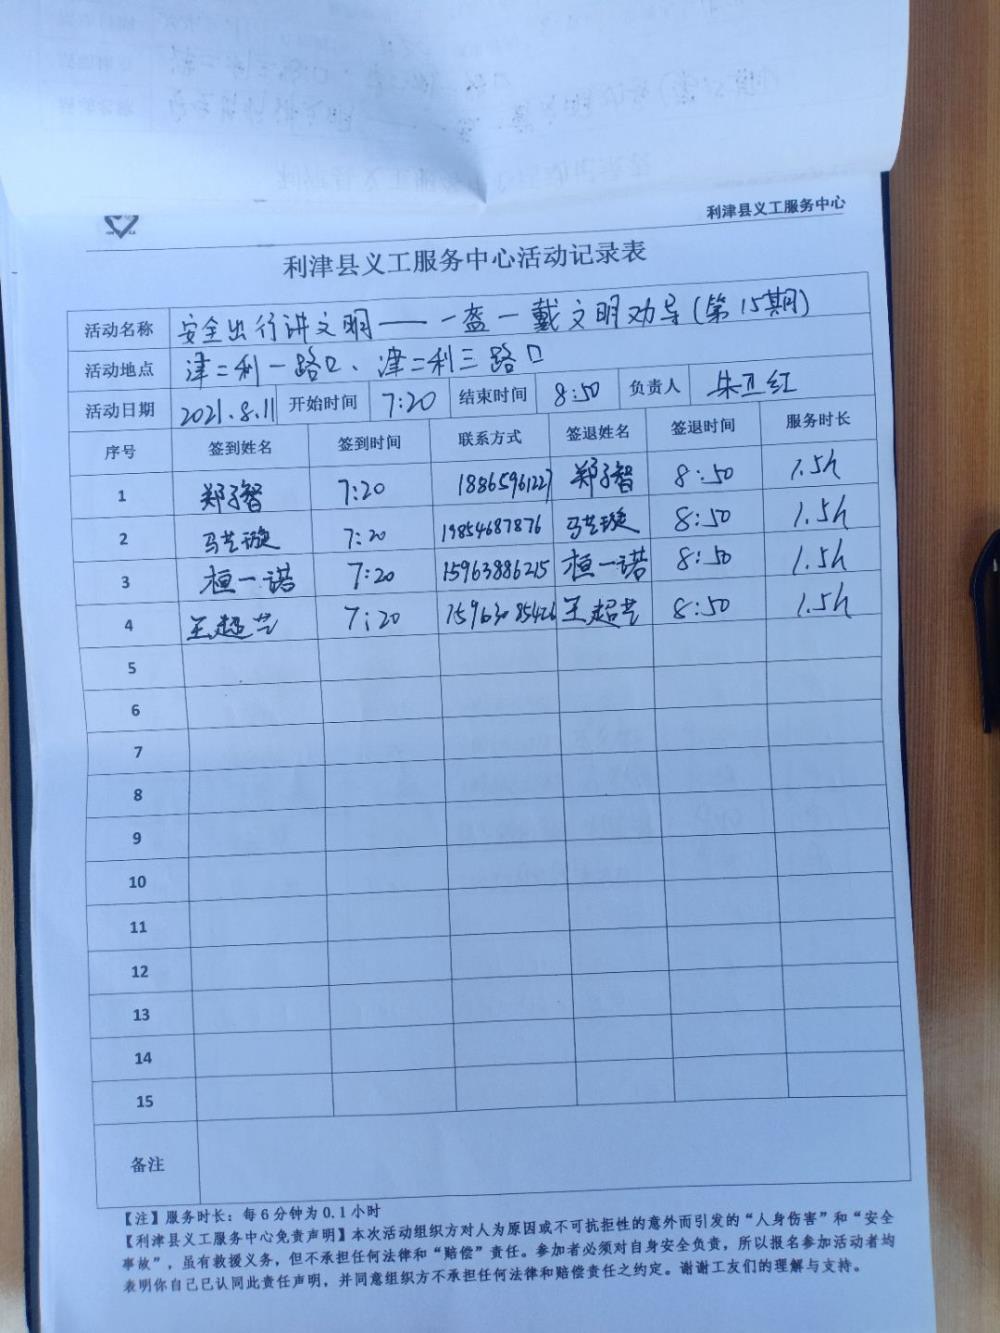 利津县义工服务中心
利津县义工服务中心活动记录表
活动名称 安全出行讲文明——一盔一戴文明劝导(第15期)
活动地点 津二利一路口、津二利三路口
活动日期 2021.8.11 开始时间 7:20 结束时间 8:50 负责人 朱卫红
序号 签到姓名 签到时间 联系方式 签退姓名 签退时间 服务时长
1 郑子智 7:20 18865961227 郑子智 8:50 1.5h
2 马艺璇 7:20 19854687876 马艺璇 8:50 1.5h
3 桓一诺 7:20 15963886215 桓一诺 8:50 1.5h
4 王超艺 7:20 15963085426 王超艺 8:50 1.5h
5
6
7
8
9
10
11
12
13
14
15
备注
【注】服务时长：每6分钟为0.1小时
【利津县义工服务中心免责声明】本次活动组织方对人为原因或不可抗拒性的意外而引发的“人身伤害”和“安全
事故”，虽有救援义务，但不承担任何法律和“赔偿”责任。参加者必须对自身安全负责，所以报名参加活动者均
表明你自己已认同此责任声明，并同意组织方不承担任何法律和赔偿责任之约定。谢谢工友们的理解与支持。